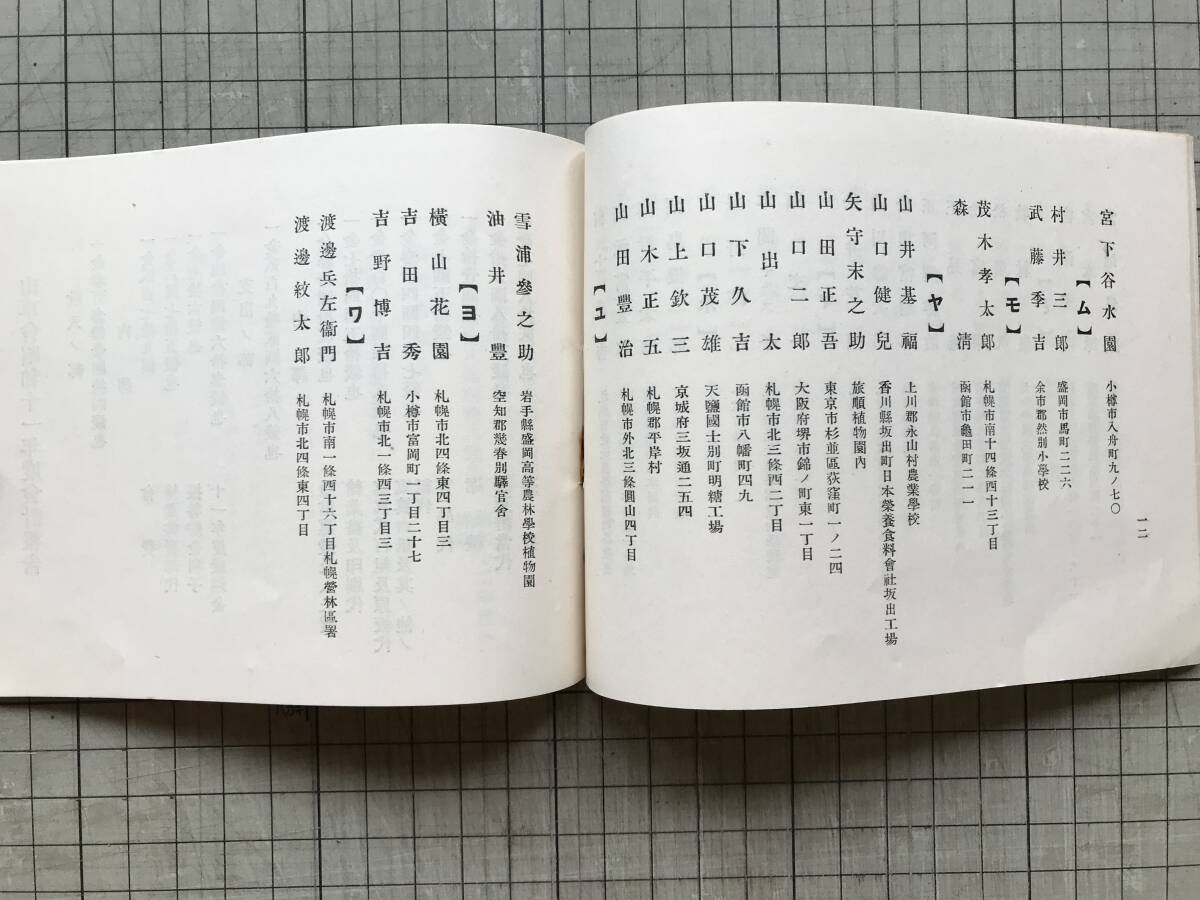 宮下谷水園 小樽市入舟町九ノ七〇
一二
【ム】
村井三郎 盛岡市馬町二二六
武藤季吉 余市郡然別小學校
【モ】
茂木孝太郎 札幌市南十四條西十三丁目
森清 函館市龜田町二一一
【ヤ】
山井基福 上川郡永山村農業學校
山口健兒 香川縣坂出町日本榮養食料會社坂出工場
矢守末之助 旅順植物園內
山田正吾 東京市杉並區荻窪町一ノ二四
山口二郎 大阪府堺市錦ノ町東一丁目
山出太 札幌市北三條西二丁目
山下久吉 函館市八幡町四九
山口茂雄 天鹽國士別町明糖工場
山上欽三 京城府三坂通二五四
山木正五 札幌郡平岸村
山田豐治 札幌市外北三條圓山四丁目
【ユ】
雪浦參之助 岩手縣盛岡高等農林學校植物園
油井豐 空知郡幾春別驛官舍
【ヨ】
橫山花園 札幌市北四條東四丁目三
吉田秀 小樽市富岡町一丁目二十七
吉野博吉 札幌市北一條西三丁目三
【ワ】
渡邊兵左衞門 札幌市南一條西四十六丁目札幌營林區署
渡邊紋太郎 札幌市北四條東四丁目